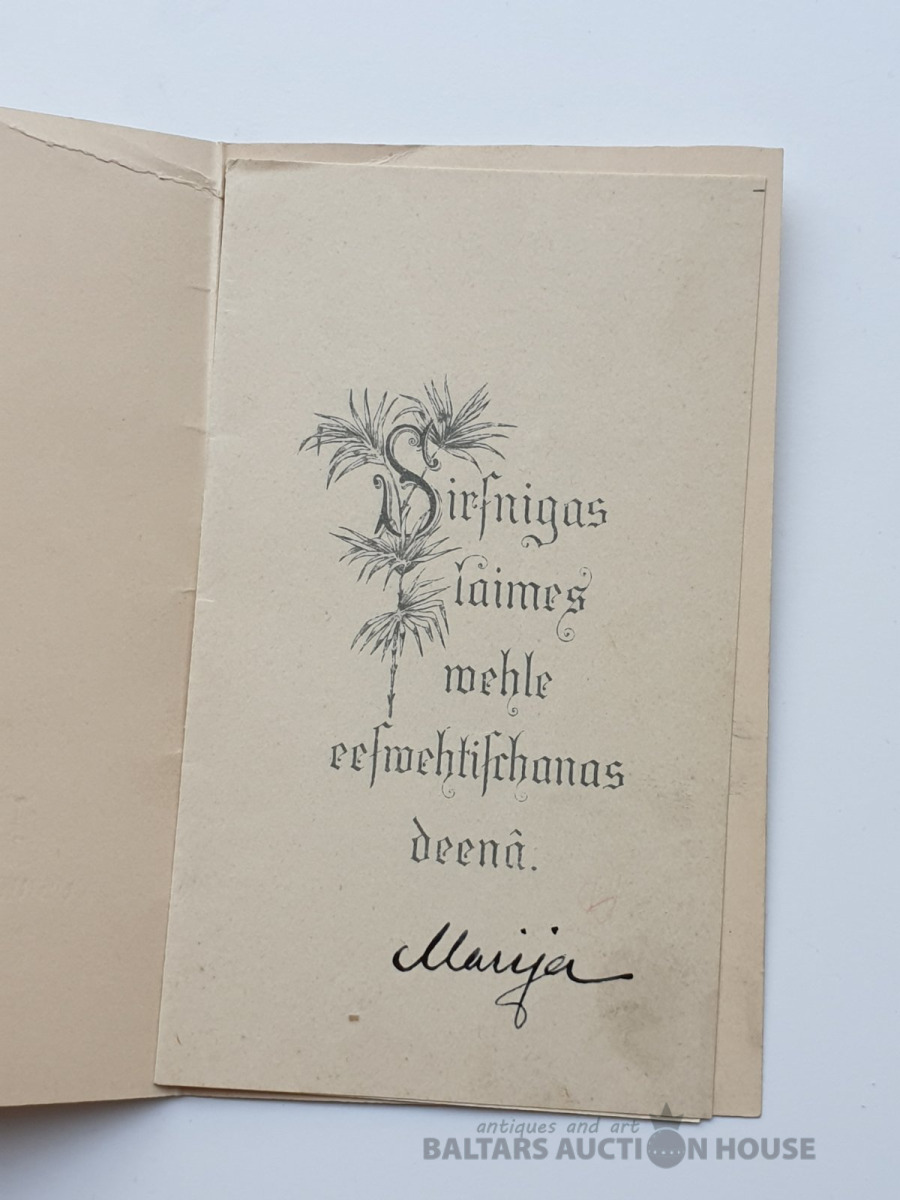 Sirſnigas
laimes
wehle
eeſwehtiſchanas
deenâ.
Marija
antiques and art
BALTARS AUCTION HOUSE